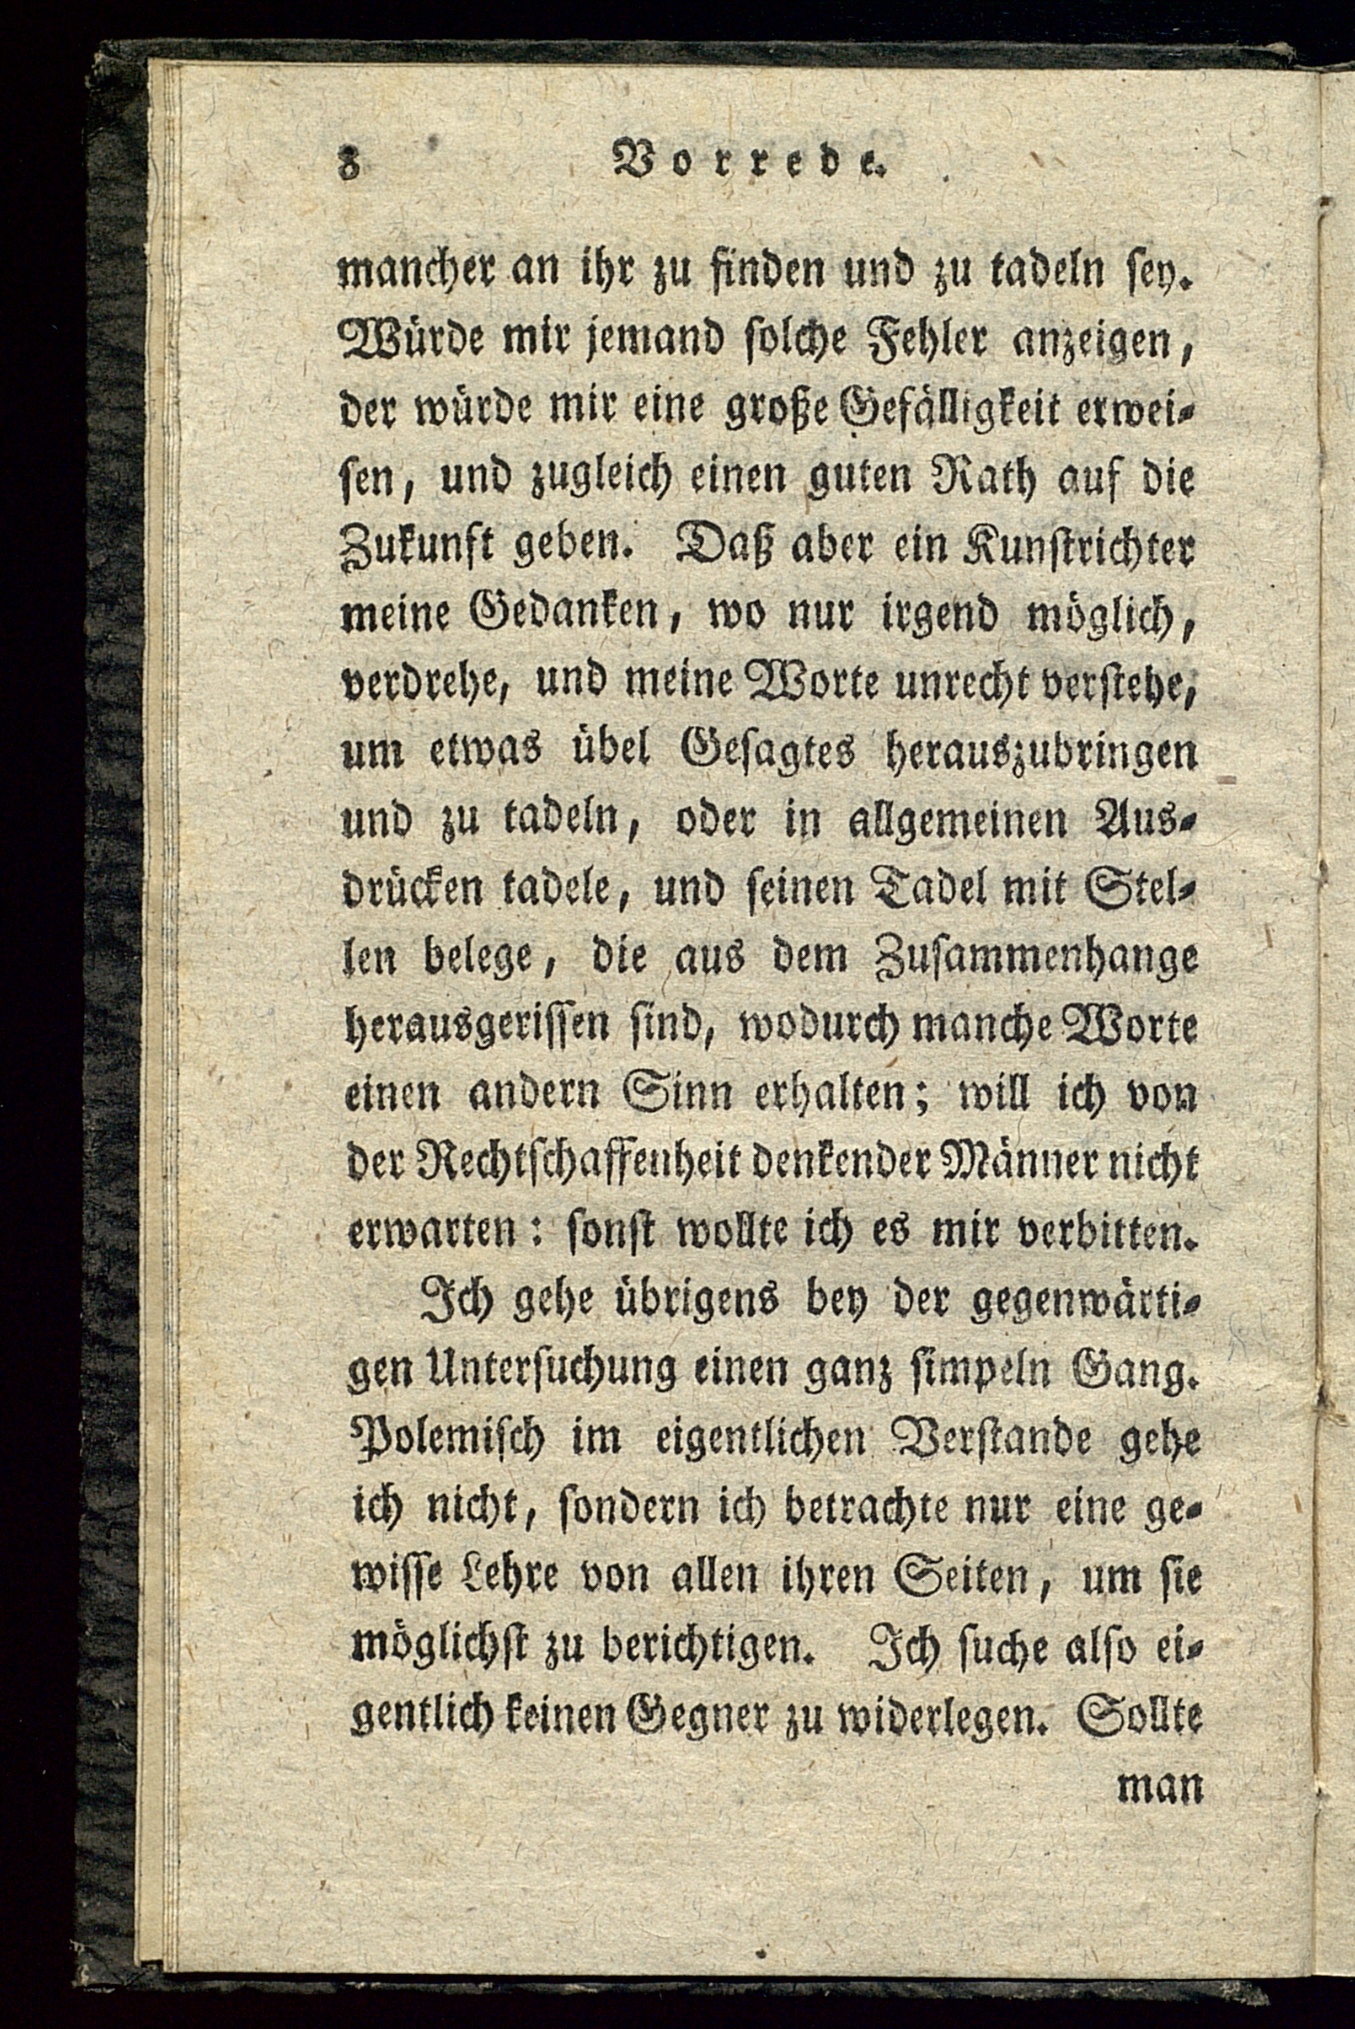 8 Vorrede.
mancher an ihr zu finden und zu tadeln sey.
Würde mir jemand solche Fehler anzeigen,
der würde mir eine große Gefälligkeit erwei-
sen, und zugleich einen guten Rath auf die
Zukunft geben. Daß aber ein Kunstrichter
meine Gedanken, wo nur irgend möglich,
verdrehe, und meine Worte unrecht verstehe,
um etwas übel Gesagtes herauszubringen
und zu tadeln, oder in allgemeinen Aus-
drücken tadele, und seinen Tadel mit Stel-
len belege, die aus dem Zusammenhange
herausgerissen sind, wodurch manche Worte
einen andern Sinn erhalten; will ich von
der Rechtschaffenheit denkender Männer nicht
erwarten: sonst wollte ich es mir verbitten.
Ich gehe übrigens bey der gegenwärti-
gen Untersuchung einen ganz simpeln Gang.
Polemisch im eigentlichen Verstande gehe
ich nicht, sondern ich betrachte nur eine ge-
wisse Lehre von allen ihren Seiten, um sie
möglichst zu berichtigen. Ich suche also ei-
gentlich keinen Gegner zu widerlegen. Sollte
man